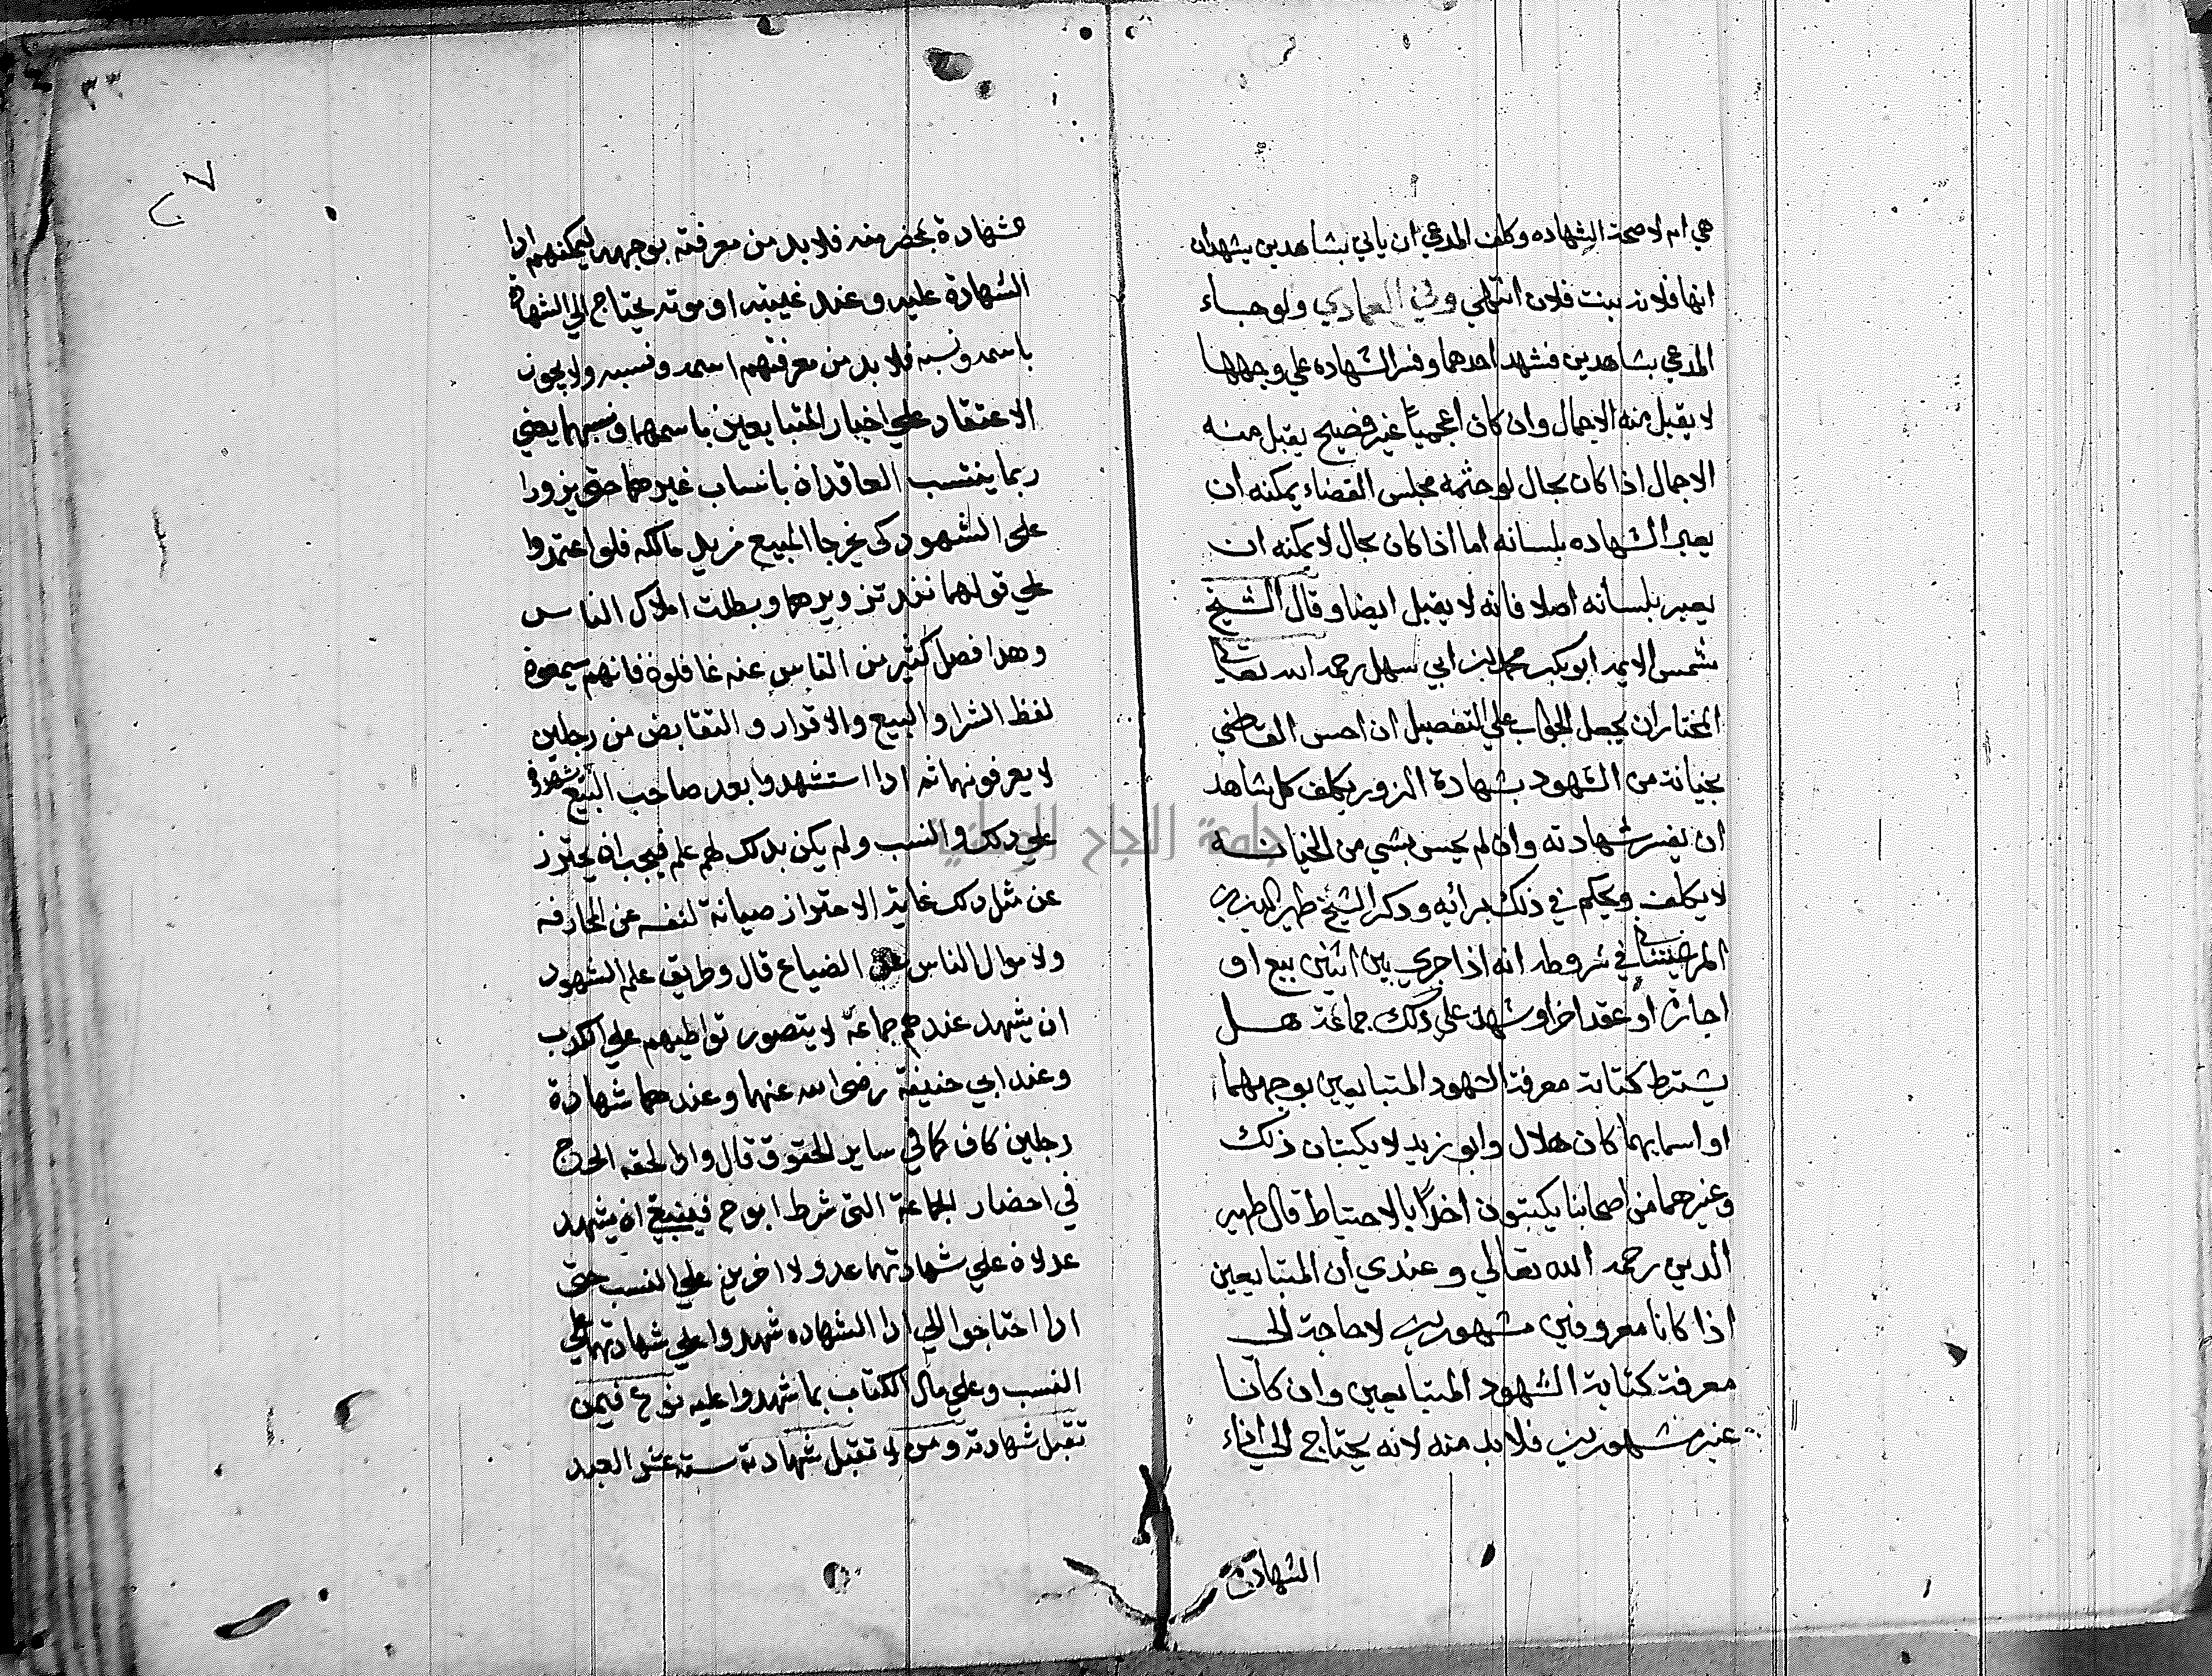 هي ام لا صحة الشهاده وكلف المدعي ان ياتي بشاهدين يشهدان
انها فلانه بنت فلان انتهي وفي العمادي ولو جاء
المدعي بشاهدين فشهد احدهما وفسر الشهاده علي وجهها
لا يقبل منه الاجمال وان كان اعجمياً غير فصيح يقبل منه
الاجمال اذا كان بحال لو مجلس القضاء يمكنه ان
يعبر الشهاده بلسانه اما اذا كان بحال لا يمكنه ان
يعبر بلسانه اصلا فانه لا يقبل ايضا وقال الشيخ
شمس الايمه ابو بكر محمد بن ابي سهل رحمه الله تعالي
المختار ان يجعل الجواب علي التفصيل ان احس القاضي
بخيانة من الشهود بشهادة الزور يكلف كل شاهد
ان يفسر شهادته وان لم يحس بشي من الخيانه
لا يكلف ويحكم في ذلك برائه وذكر الشيخ ظهير الدين
المرغيناني في شروطه انه اذا جري بين اثنين بيع او
اجارة او عقد اخر وشهد علي ذلك جماعة هل
يشترط كتابة معرفة الشهود المتبايعين بوجههما
او اسمايهما كان هلال وابو زيد لا يكتبان ذلك
وغيرهما من اصحابنا يكتبون اخذاً بالاحتياط قال ظهير
الدين رحمه الله تعالي وعندي ان المتبايعين
اذا كانا معروفين مشهورين لا حاجة الى
معرفة كتابة الشهود المتبايعين وان كانا
غير مشهورين فلا بد منه لانه يحتاج الي اداء
الشهادة
الشهادة بمحضر منه فلا بد من معرفته بوجهه ليمكنهم ادا
الشهادة عليه وعند غيبته او موته يحتاج الي الشهادة
باسمه ونسبه فلا بد من معرفتهم اسمه ونسبه ولا يجوز
الاعتماد علي اخبار المتبايعين باسمهما ونسبهما يعني
ربما ينتسب العاقدان بانساب غيرهما حتى يزورا
على الشهود كي يخرجا المبيع من يد مالكه فلو اعتمدوا
علي قولهما نفذ تزويرهما وبطلت املاك الناس
وهذا فصل كثير من الناس عنه غافلون فانهم يسمعون
لفظ الشرا والبيع والاقرار والتقابض من رجلين
لا يعرفونهما ثم اذا استشهدوا بعد صاحب البيع شهدوا
علي ذلك والنسب ولم يكن بذلك لهم علم فيجب ان يحترز
عن مثل ذلك غاية الاحتراز صيانة لنفسه عن المجازفه
ولاموال الناس عن الضياع قال وطريق علم الشهود
ان يشهد عندهم جماعة لا يتصور تواطيهم علي الكذب
وعند ابي حنيفة رضى الله عنهما وعندهما شهادة
رجلين كاف كما في ساير الحقوق قال واذا لحقه الحرج
في احضار الجماعة التى شرط ابو ح فينبغي ان يشهد
عدلان علي شهادتهما عدولا اخرين علي النسب حتى
اذا احتاجوا الي ادا الشهاده شهدوا علي شهادتهما علي
النسب وعلي مال الكتاب بما شهدوا عليه نوع فيمن
تقبل شهادته ومن لا تقبل شهادته ستة عشر العبد
٢٧
جامعة النجاح الوطنية